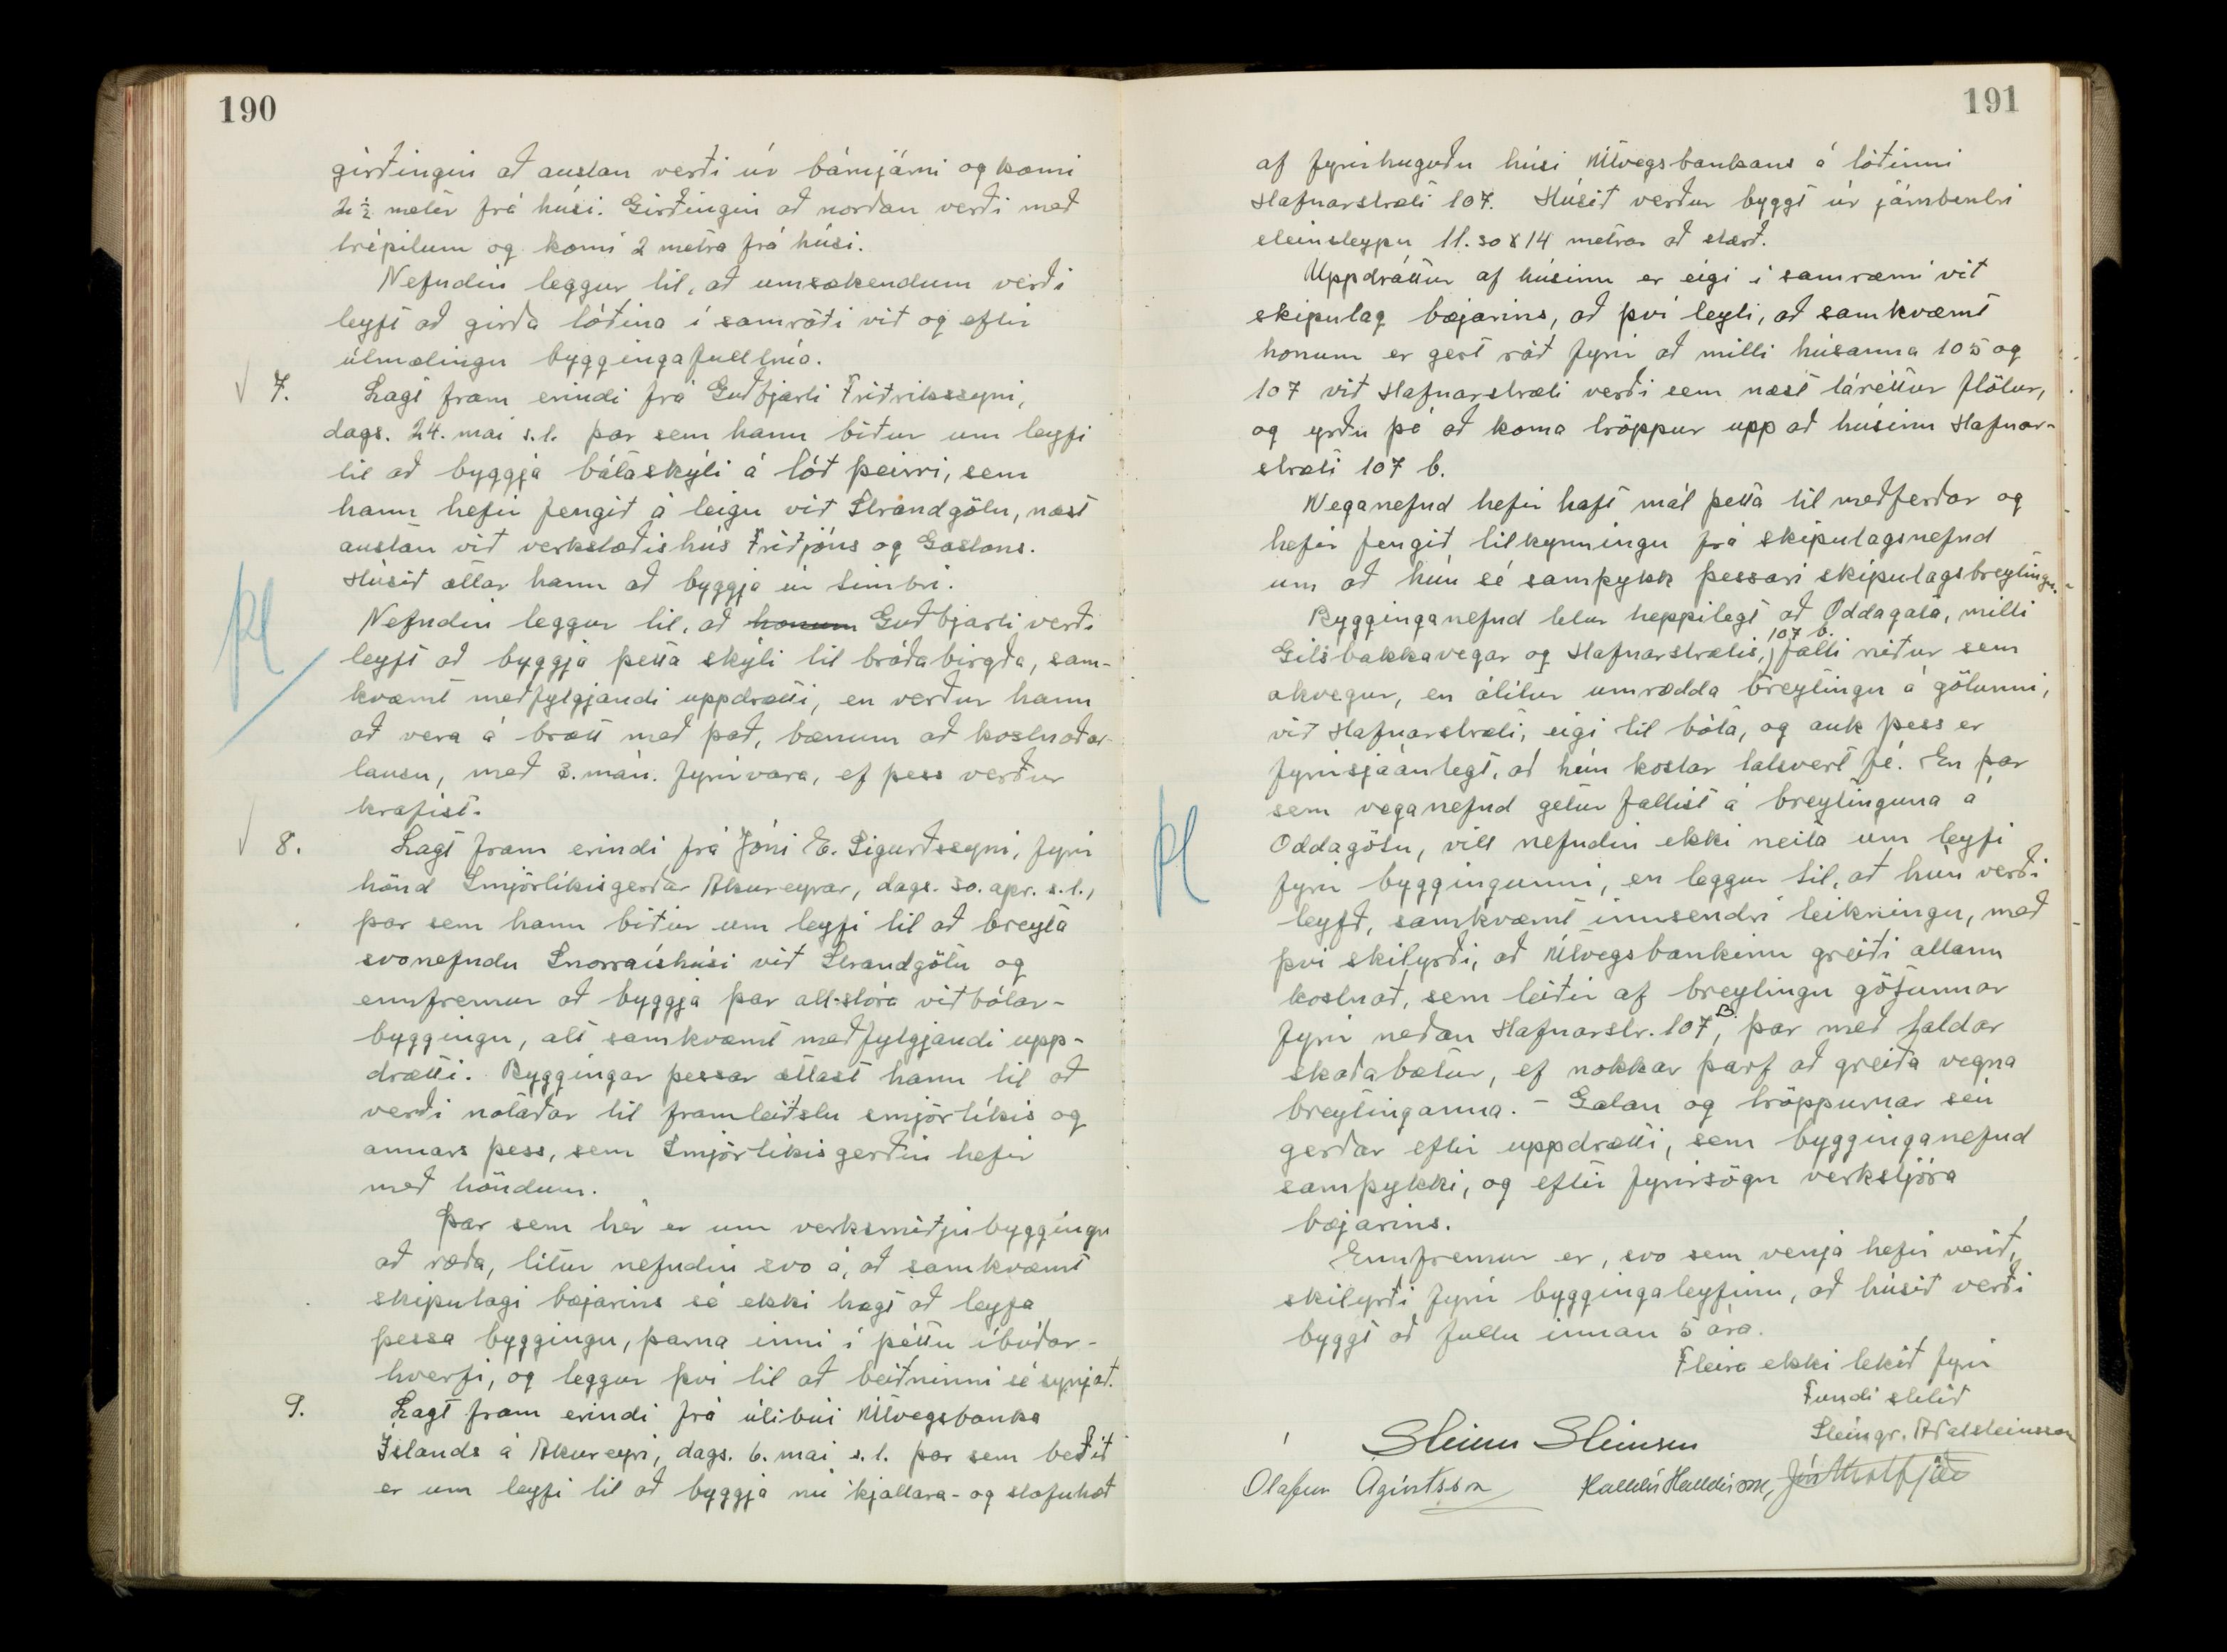 190
girðingin að austan verði úr bárujárni og komi
2 ½ meter frá húsi. Girðingin að norðan verði með
trépilum og komi 2 metra frá húsi.
Nefndin leggur til, að umsækendum verði
leyft að girða lóðina í samráði við og eftir
útmælingu byggingafulltrúa.
7. Lagt fram erindi frá Guðbjarti Friðrikssyni,
dags. 24. mai s.l. þar sem hann biður um leyfi
til að byggja bátaskýli á lóð þeirri, sem
hann hefir fengið á leigu við Strandgötu, næst
austan við verkstæðishús Friðjóns og Gastons.
Húsið ætlar hann að byggja úr timbri.
Nefndin leggur til, að honum Guðbjarti verði
leyft að byggja þetta skýli til bráðabirgða, sam-
kvæmt meðfylgjandi uppdrætti, en verður hann
að vera á brott með það, bænum að kostnaðar-
lausu, með 3. mán. fyrirvara, ef þess verður
krafist.
8. Lagt fram erindi frá Jóni E. Sigurðssyni, fyrir
hönd Smjörlíkisgerðar Akureyrar, dags. 30. apr. s.l.,
þar sem hann biður um leyfi til að breyta
svonefndu Snorraíshúsi við Strandgötu og
ennfremur að byggja þar all-stóra viðbótar-
byggingu, alt samkvæmt meðfylgjandi upp-
drætti. Byggingar þessar ætlast hann til að
verði notaðar til framleiðslu smjörlíkis og
annars þess, sem Smjörlíkisgerðin hefir
með höndum.
Þar sem hér er um verksmiðjubyggingu
að ræða, lítur nefndin svo á, að samkvæmt
skipulagi bæjarins sé ekki hægt að leyfa
þessa byggingu, þarna inni í þéttu íbúðar-
hverfi, og leggur því til að beiðninni sé synjað.
9. Lagt fram erindi frá útibúi Útvegsbanka
Íslands á Akureyri, dags. 6. mai s.l. þar sem beðið
er um leyfi til að byggja nú kjallara- og stofuhæð
191
af fyrirhuguðu húsi Útvegsbankans á lóðinni
Hafnarstræti 107. Húsið verður byggt úr járnbentri
steinsteypu 11.30 x 14 metrar að stærð.
Uppdráttur af húsinu er eigi í samræmi við
skipulag bæjarins, að því leyti, að samkvæmt
honum er gert ráð fyrir að milli húsanna 105 og
107 við Hafnarstræti verði sem næst láréttur flötur,
og yrðu þá að koma tröppur upp að húsinu Hafnar-
stræti 107 b.
Veganefnd hefir haft mál þetta til meðferðar og
hefir fengið tilkynningu frá skipulagsnefnd
um að hún sé samþykk þessari skipulagsbreytingu.
Bygginganefnd telur heppilegt að Oddagata, milli
Gilsbakkavegar og Hafnarstrætis, 107 b. falli niður sem
akvegur, en álítur umrædda breytingu á götunni,
við Hafnarstræti, eigi til bóta, og auk þess er
fyrirsjáanlegt, að hún kostar talsvert fé. En þar
sem veganefnd getur fallist á breytinguna á
Oddagötu, vill nefndin ekki neita um leyfi
fyrir byggingunni, en leggur til, að hún verði
leyfð, samkvæmt innsendri teikningu, með
því skilyrði, að Útvegsbankinn greiði allann
kostnað, sem leiðir af breytingu götunnar
fyrir neðan Hafnarstr. 107 B., þar með taldar
skaðabætur, ef nokkar þarf að greiða vegna
breytinganna. – Gatan og tröppurnar séu
gerðar eftir uppdrætti, sem bygginganefnd
samþykki, og eftir fyrirsögn verkstjóra
bæjarins.
Ennfremur er, svo sem venja hefir verið,
skilyrði fyrir byggingaleyfinu, að húsið verði
byggt að fullu innan 5 ára.
Fleira ekki tekið fyrir
Fundi slitið
Steingr. Aðalsteinsson
Steinn Steinsen
Olafur Agústsson Halldór Halldórsson,